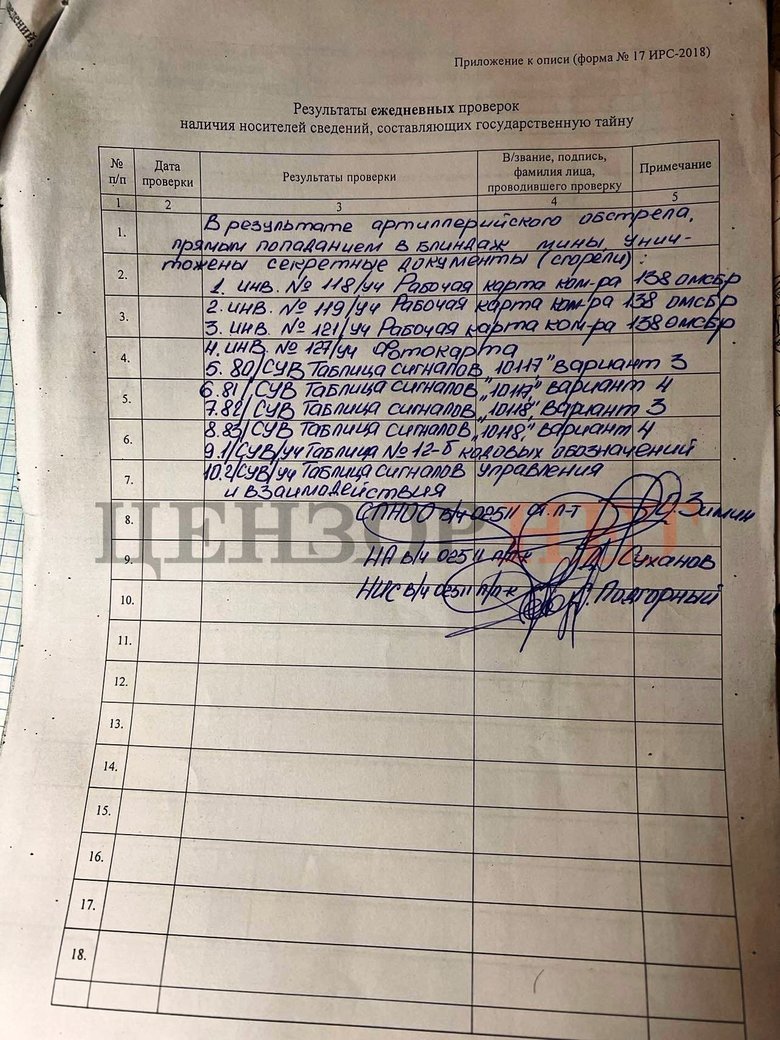 Приложение к описи (форма № 17 ИРС-2018)
Результаты ежедневных проверок
наличия носителей сведений, составляющих государственную тайну
№ п/п
Дата проверки
Результаты проверки
В/звание, подпись, фамилия лица, проводившего проверку
Примечание
1 2 3 4 5
1. В результате артиллерийского обстрела,
прямым попаданием в блиндаж мины, унич-
2. тожены секретные документы (сгорели):
1. инв. № 118/уч Рабочая карта ком-ра 138 омсбр
3. 2. инв. № 119/уч Рабочая карта ком-ра 138 омсбр
3. инв. № 121/уч Рабочая карта ком-ра 138 омсбр
4. 4. инв. № 127/уч Фотокарта
5. 80/СУВ Таблица сигналов „10117" вариант 3
5. 6. 81/СУВ Таблица сигналов „10117," вариант 4
7. 82/СУВ Таблица сигналов „10118," вариант 3
6. 8. 83/СУВ Таблица сигналов „10118," вариант 4
9. 1/СУВ/уч Таблица № 12-б кодовых обозначений
7. 10. 2/СУВ/уч Таблица сигналов управления
и взаимодействия
8. СПНОО в/ч 02511 ст. л-т Зимин
ЦЕНЗОР.НЕТ
9. НА в/ч 02511 Суханов
НИС в/ч 02511 п/п-к Подгорный
10.
11.
12.
13.
14.
15.
16.
17.
18.